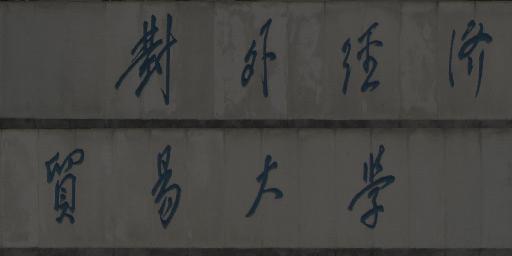 對外經济
貿易大學